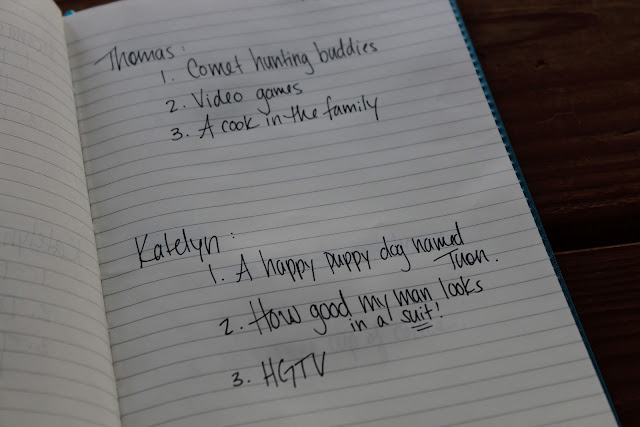 Thomas:
1. Comet hunting buddies
2. Video games
3. A cook in the family
Katelyn:
1. A happy puppy dog named
Tuon.
2. How good my man looks
in a suit!
3. HGTV